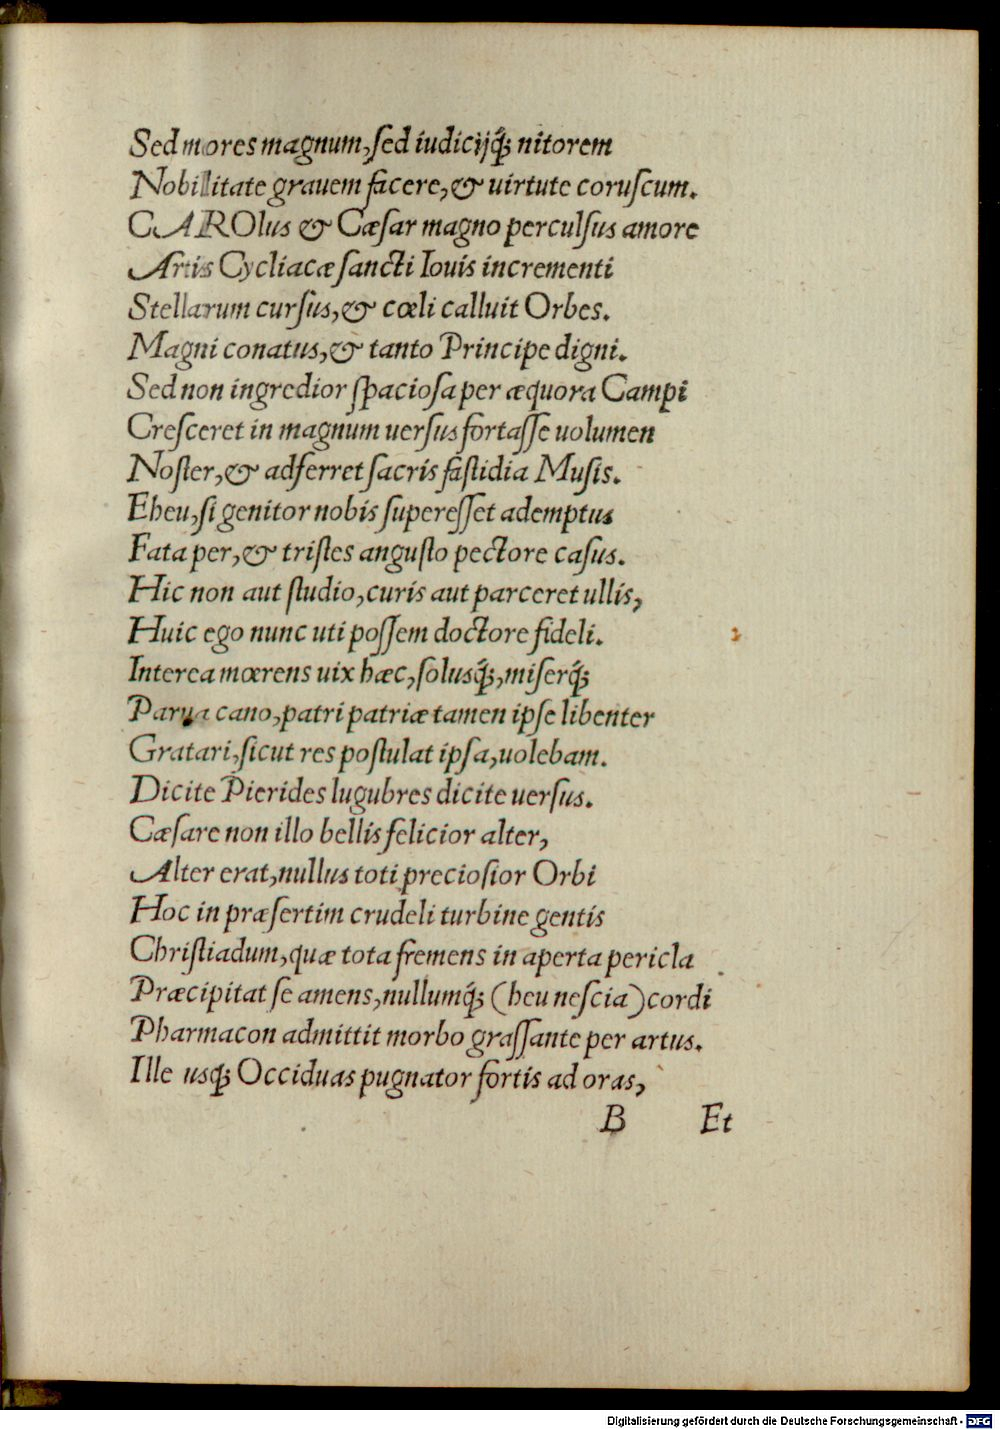 Sed mores magnum, ſed iudicijq́; nitorem
Nobilitate grauem facere, & uirtute coruſcum.
CAROlus & Cæſar magno perculſus amore
Artis Cycliacæ ſancti Iouis incrementi
Stellarum curſus, & cœli calluit Orbes.
Magni conatus, & tanto Principe digni.
Sed non ingredior ſpacioſa per æquora Campi
Creſceret in magnum uerſus fortaſſe uolumen
Noſter, & adferret ſacris faſtidia Muſis.
Eheu, ſi genitor nobis ſupereſſet ademptus
Fata per, & triſtes anguſto pectore caſus.
Hic non aut ſtudio, curis aut parceret ullis,
Huic ego nunc uti poſſem doctore fideli.
Interea mœrens uix hæc, ſolusq́;, miſerq́;
Parua cano, patri patriæ tamen ipſe libenter
Gratari, ſicut res poſtulat ipſa, uolebam.
Dicite Pierides lugubres dicite uerſus.
Cæſare non illo bellis felicior alter,
Alter erat, nullus toti precioſior Orbi
Hoc in præſertim crudeli turbine gentis
Chriſtiadum, quæ tota fremens in aperta pericla
Præcipitat ſe amens, nullumq́; (heu neſcia) cordi
Pharmacon admittit morbo graſſante per artus.
Ille usq; Occiduas pugnator fortis ad oras,
B Et
Digitalisierung gefördert durch die Deutsche Forschungsgemeinschaft - DFG